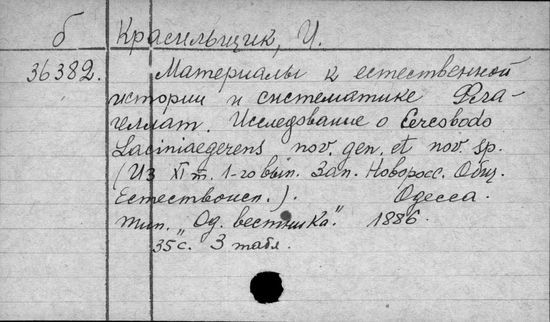 б Красильщик, И.
36382. Материалы к естественной
истории и систематике Фла-
геллат. Исследование о Cercobodo
Laciniaegerens nov. gen. et nov. sp.
(Из XI т. 1-го вып. Зап. Новоросс. Общ.
Естествоисп.). Одесса.
тип. „Од. вестника". 1886.
35 с. 3 табл.